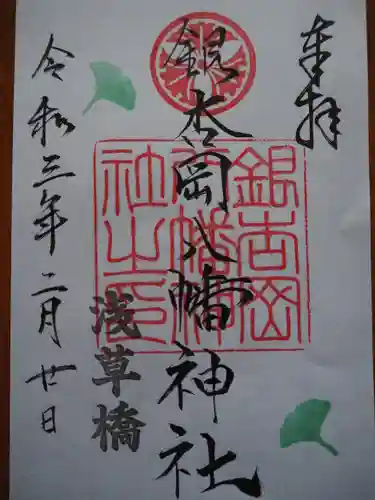 奉拝
銀杏岡八幡神社
銀杏岡
八幡神
社之印
浅草橋
令和三年二月廿日